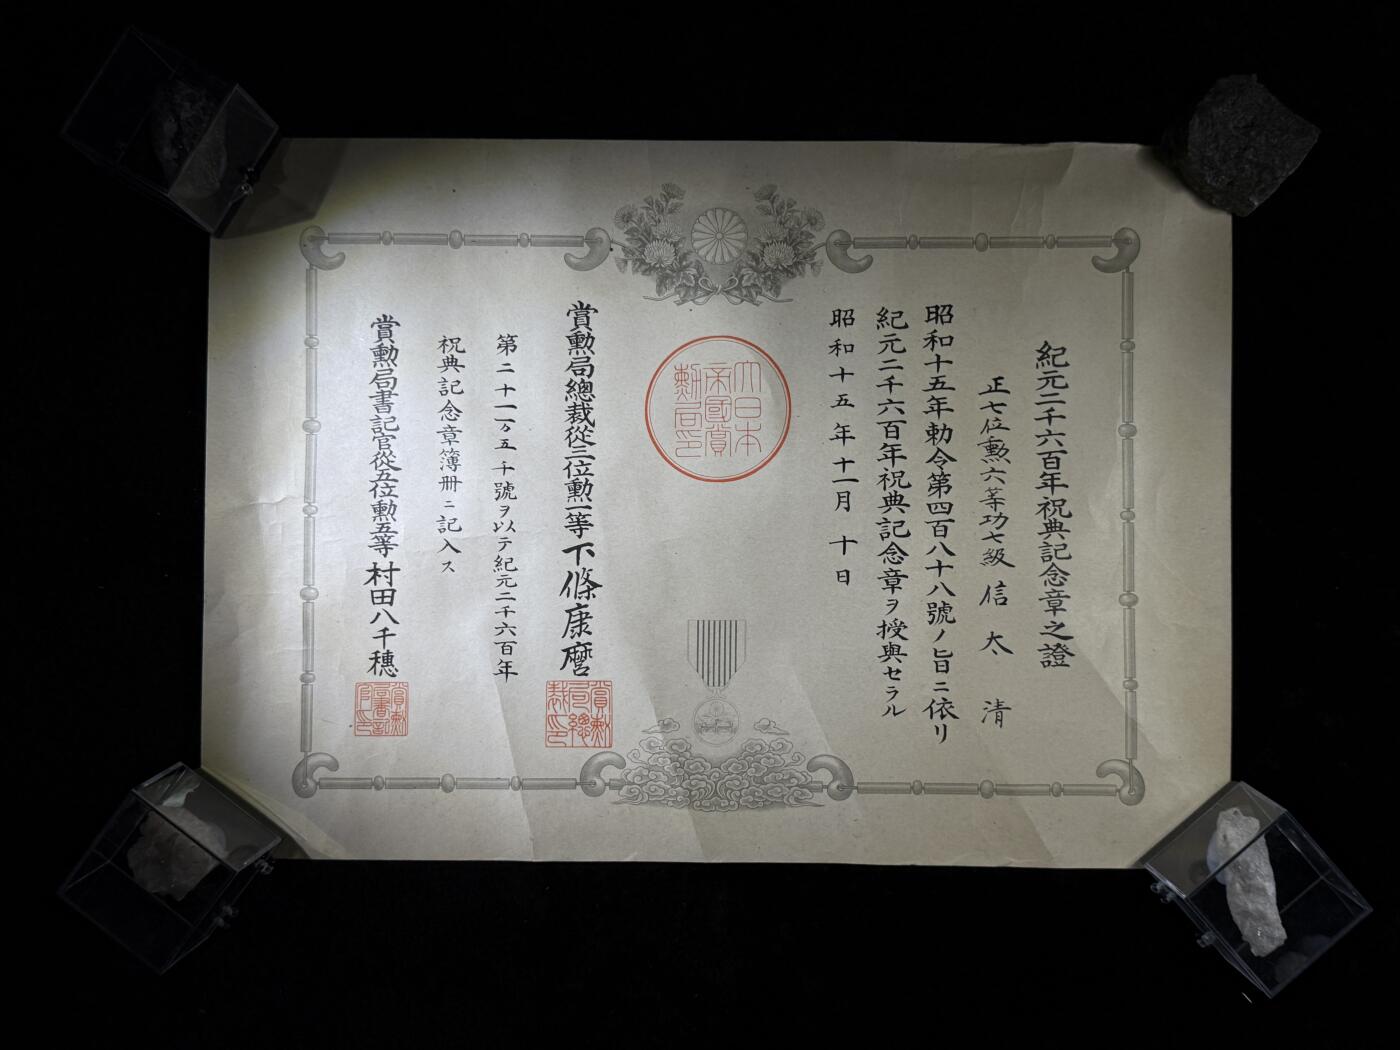 紀元二千六百年祝典記念章之證
正七位勲六等功七級 信太 清
昭和十五年勅令第四百八十八號ノ旨ニ依リ
紀元二千六百年祝典記念章ヲ授與セラル
昭和十五年十一月十日
大日本
帝國賞
勲局印
賞勲局總裁從三位勲一等下條康麿
賞勲
局總
裁印
第二十一万五千號ヲ以テ紀元二千六百年
祝典記念章簿冊ニ記入ス
賞勲局書記官從五位勲五等村田八千穂
賞勲
局書記
官印